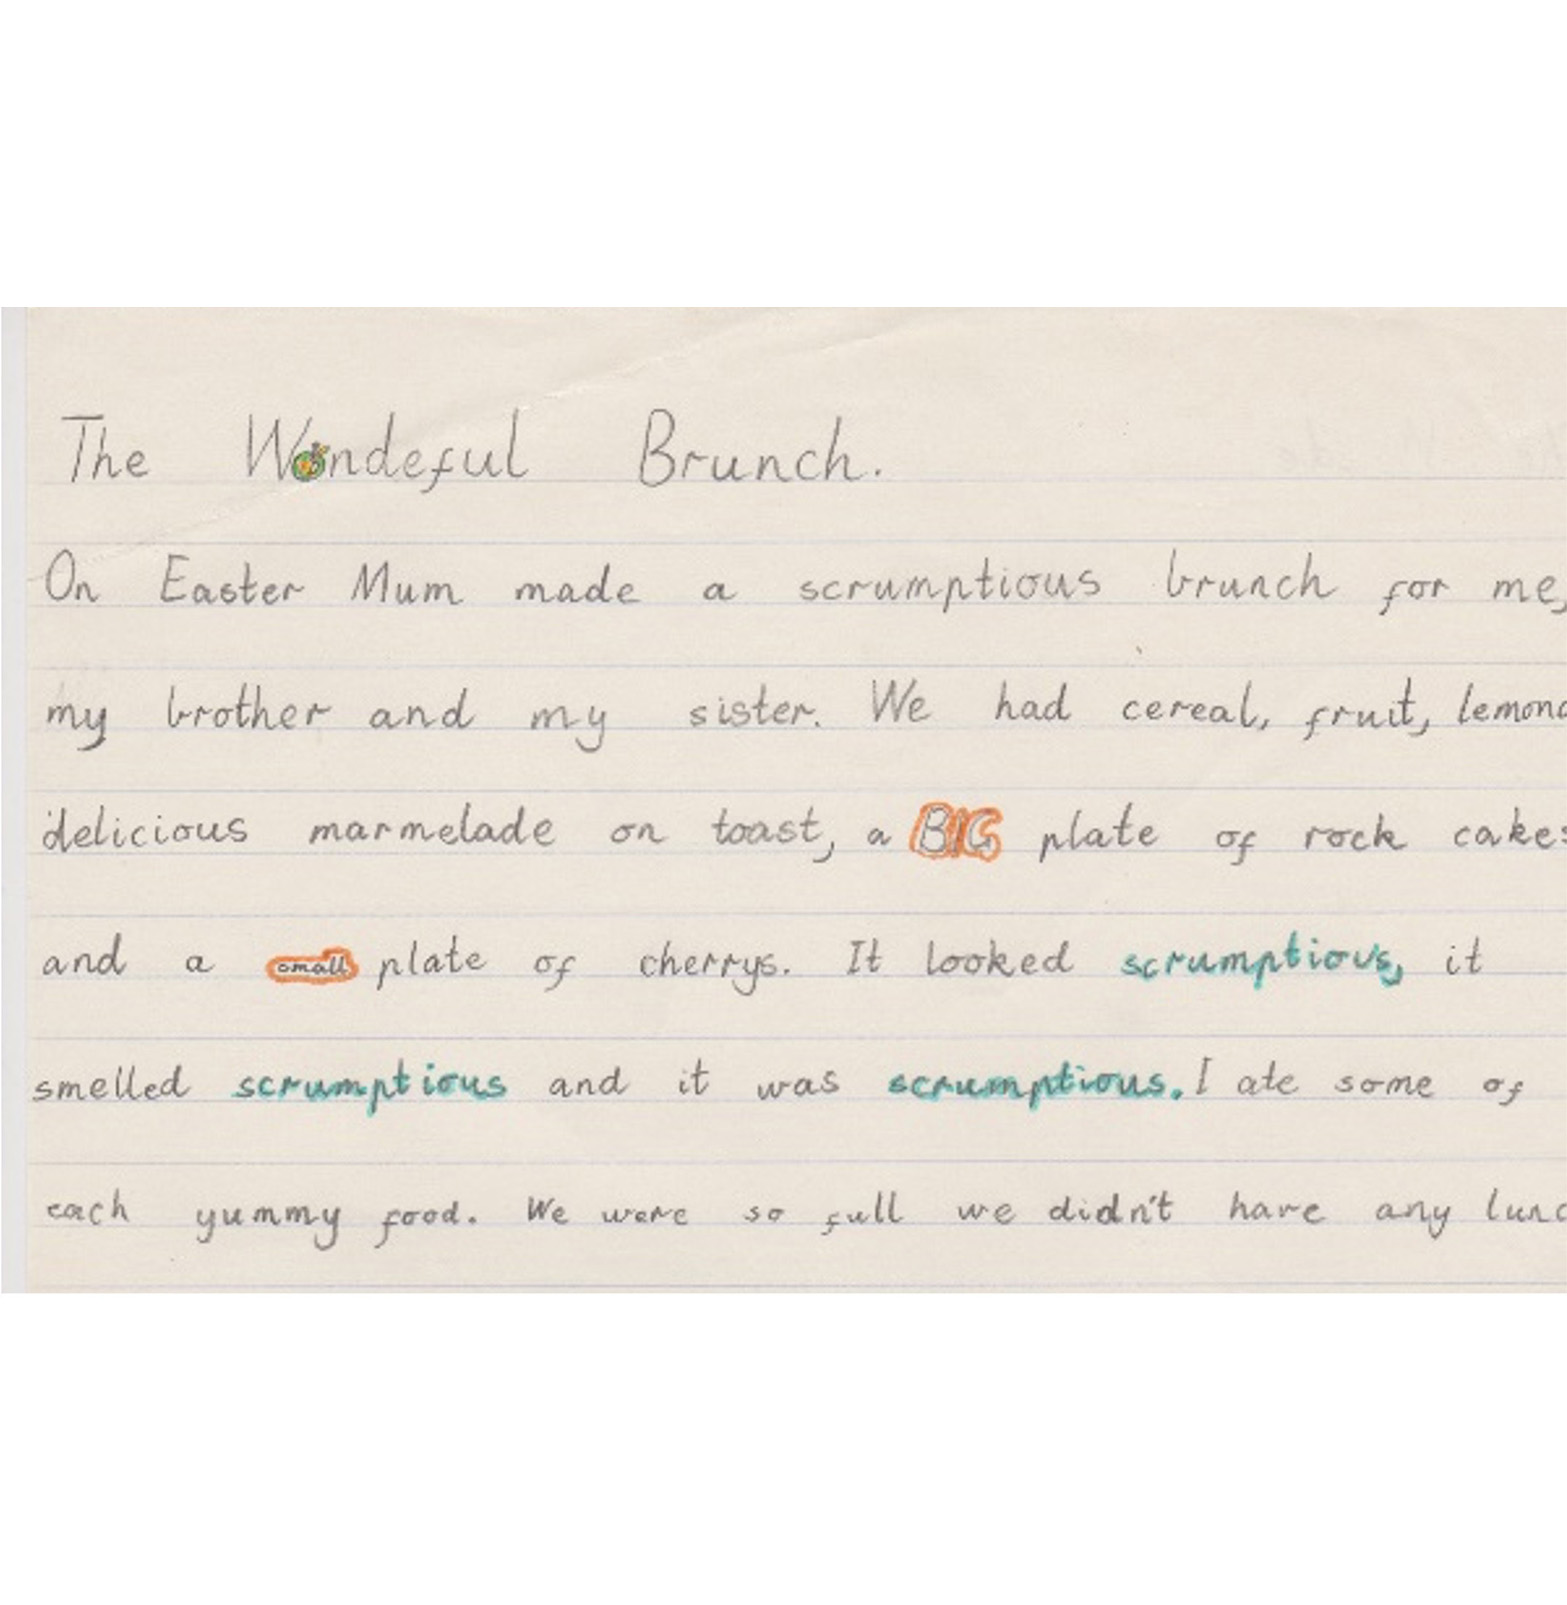 The Wondeful Brunch.
On Easter Mum made a scrumptious brunch for me,
my brother and my sister. We had cereal, fruit,
delicious marmelade on toast, a BIG plate of rock cakes
and a small plate of cherrys. It looked scrumptious, it
smelled scrumptious and it was scrumptious. I ate some of
each yummy food. We were so full we didn't have any